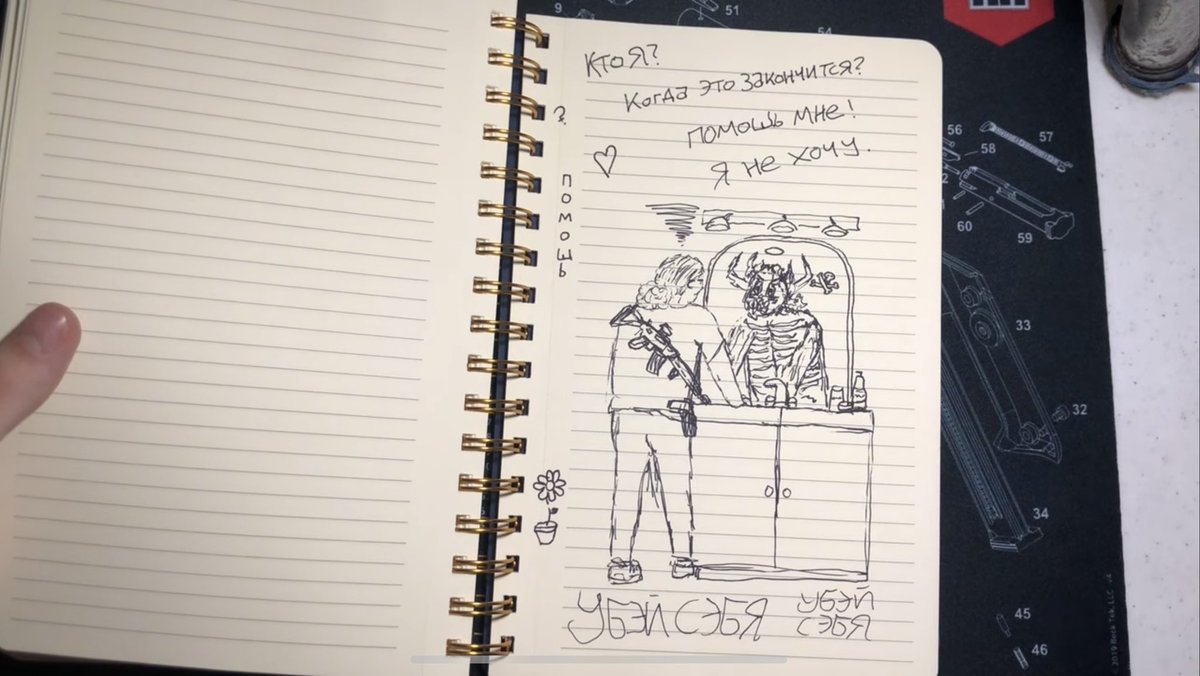 Кто я?
Когда это закончится?
Помошь мне!
Я не хочу.
?
помошь
Убэй сэбя
Убэй
сэбя
9
51
54
56
57
58
60
59
33
32
34
45
46
© 2019 Beck Tek, LLC v4